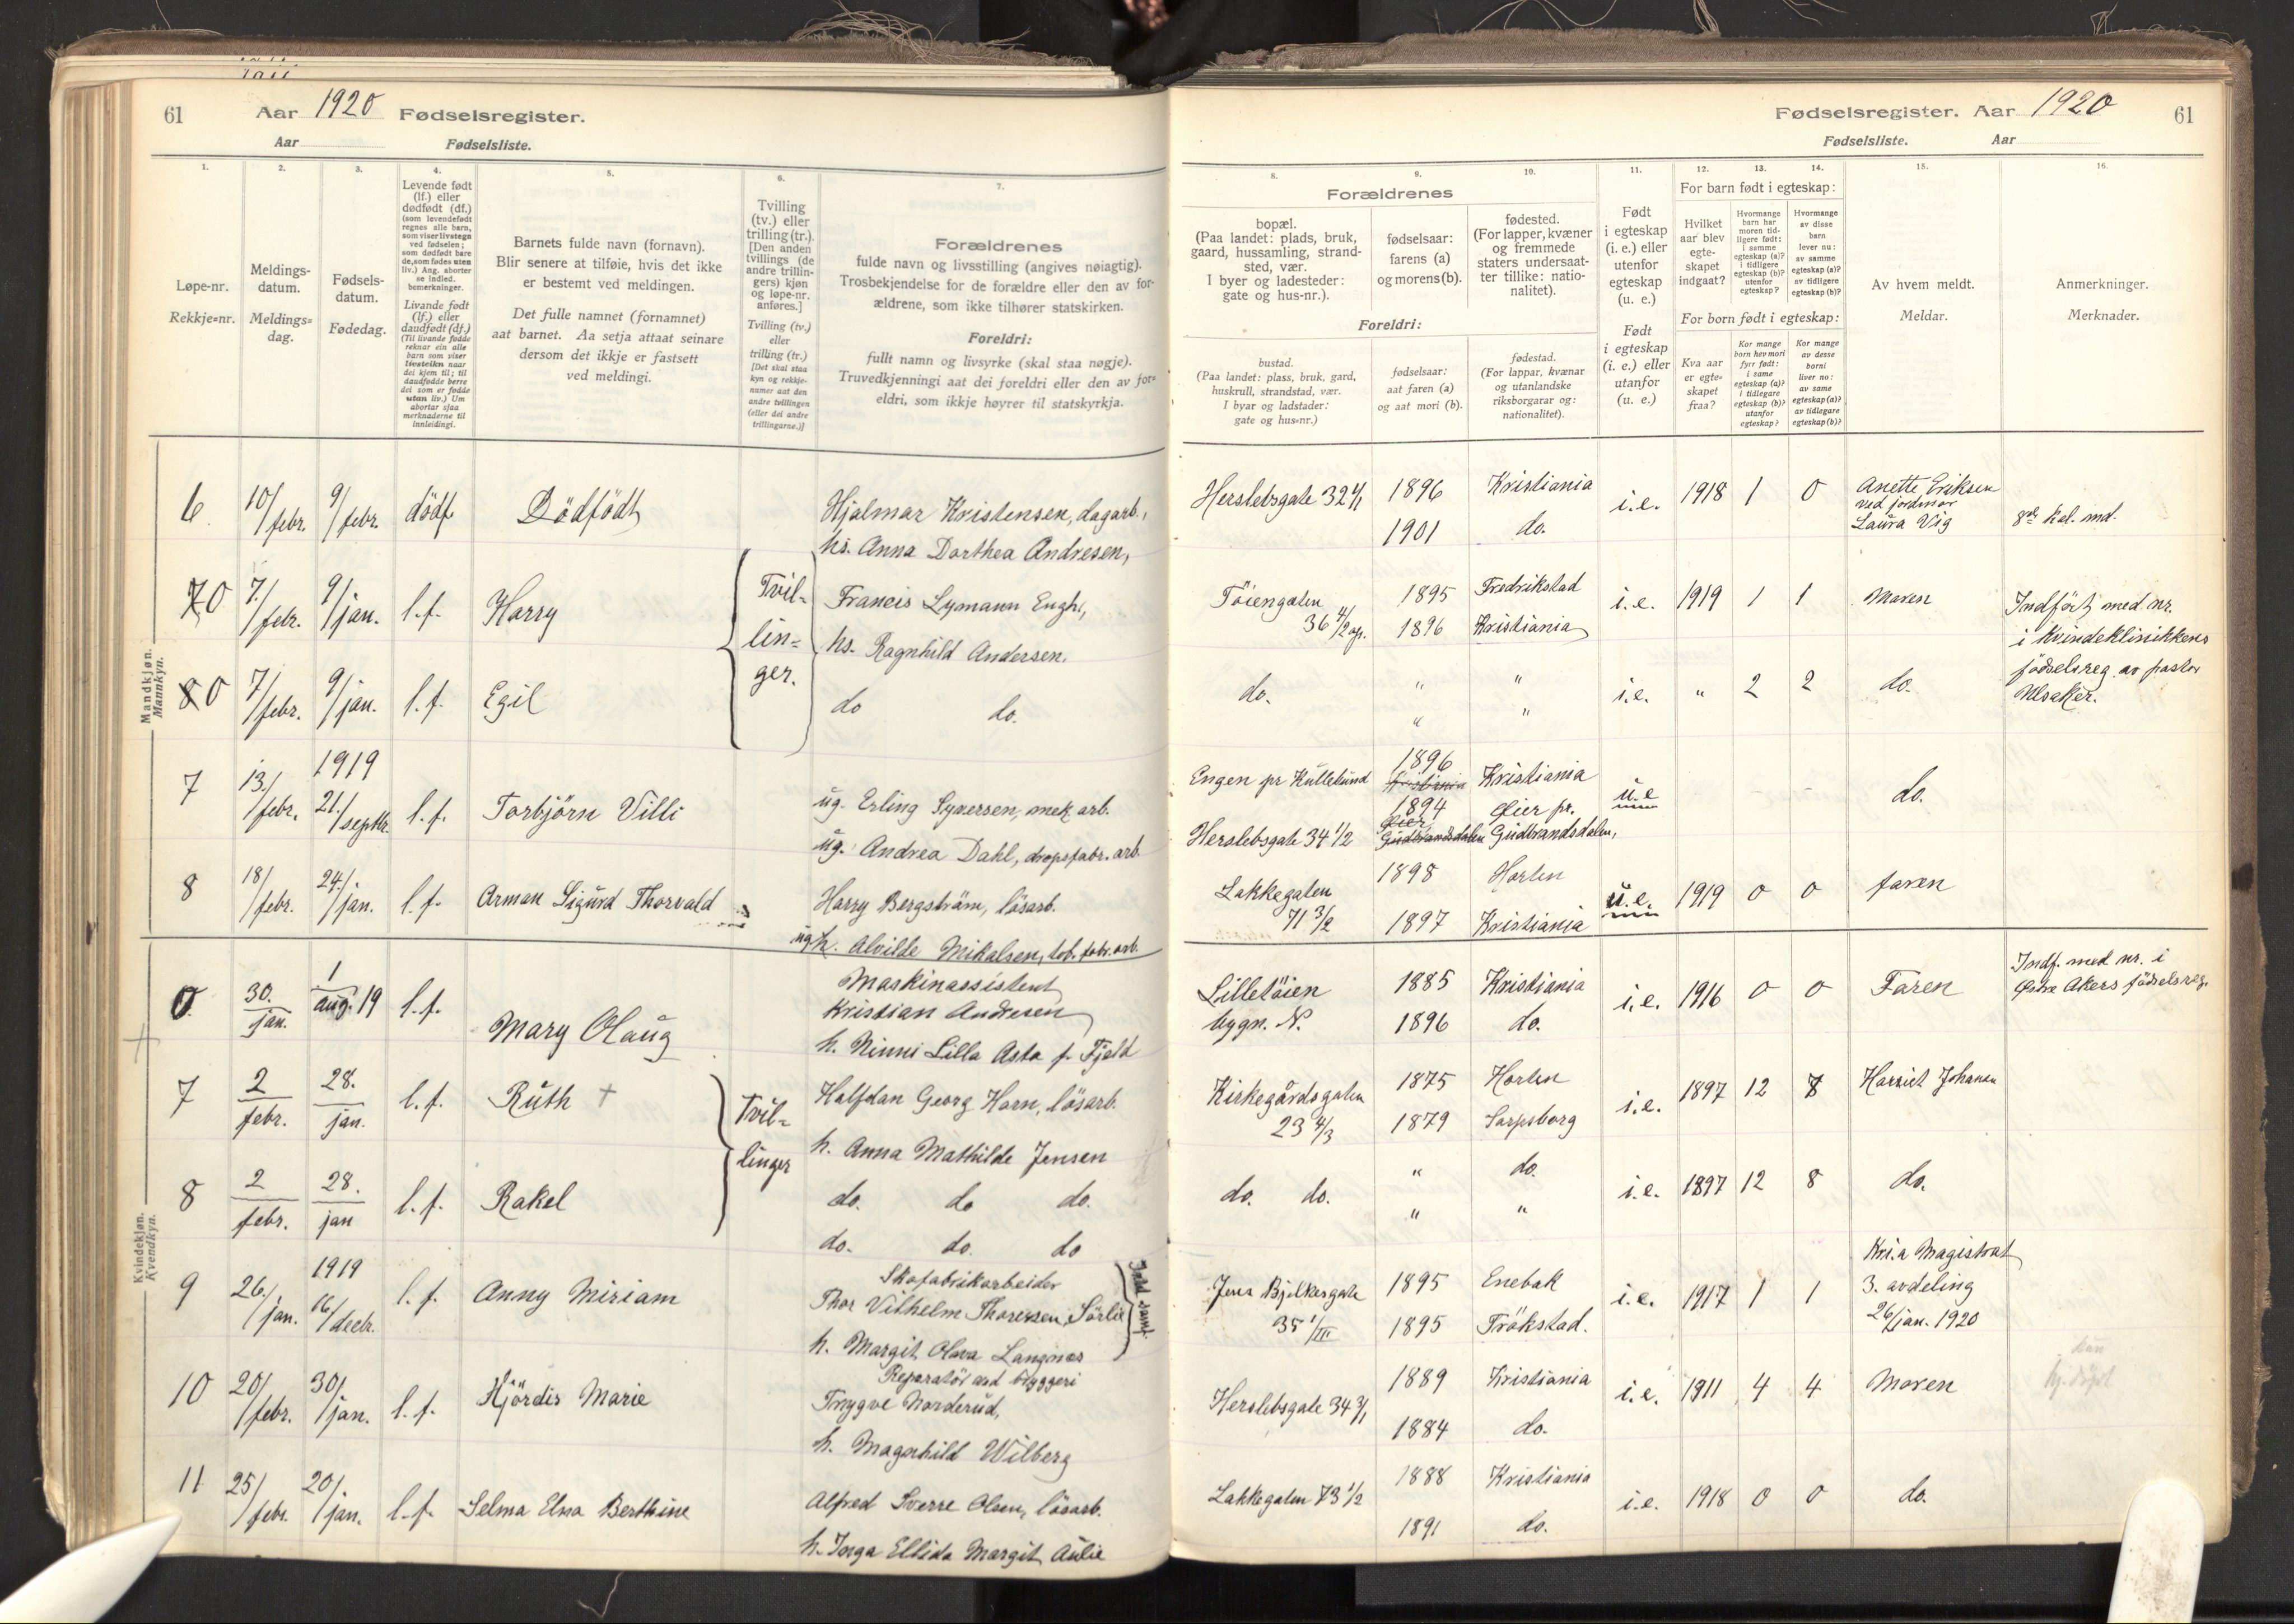 61 Aar 1920 Fødselsregister.
Aar Fødselsliste.
1.
Løpe-nr.
Rekkje=nr.
2.
Meldings-
datum.
Meldings=
dag.
3.
Fødsels-
datum.
Fødedag.
4.
Levende født
(lf.) eller
dødfødt (df.)
(som levendefødt
regnes alle barn,
som viser livstegn
ved fødselen;
som dødfødt bare
de, som fødes uten
liv.) Ang. aborter
se indled.
bemerkninger.
Livande født
(lf.) eller
daudfødt (df.)
(Til livande fødde
reknar ein alle
barn som viser
livsteikn naar
dei kjem til; til
daudfødde berre
dei som er fødde
utan liv.) Um
abortar sjaa
merknaderne til
innleidingi.
5.
Barnets fulde navn (fornavn).
Blir senere at tilføie, hvis det ikke
er bestemt ved meldingen.
Det fulle namnet (fornamnet)
aat barnet. Aa setja attaat seinare
dersom det ikkje er fastsett
ved meldingi.
6.
Tvilling
(tv.) eller
trilling (tr.).
[Den anden
tvillings (de
andre trillin-
gers) kjøn
og løpe-nr.
anføres.]
Tvilling (tv.)
eller
trilling (tr.)
[Det skal staa
kyn og rekkje-
numer aat den
andre tvillingen
(eller dei andre
trillingarne.)]
7.
Forældrenes
fulde navn og livsstilling (angives nøiagtig).
Trosbekjendelse for de forældre eller den av for-
ældrene, som ikke tilhører statskirken.
Foreldri:
fullt namn og livsyrke (skal staa nøgje).
Truvedkjenningi aat dei foreldri eller den av for=
eldri, som ikkje høyrer til statskyrkja.
Mandkjøn.
Mannkyn.
6 10/febr. 9/febr. dödf. Dödfödt Hjalmar Kristensen, dagarb.,
hs. Anna Dorthea Andresen,
7 0 7/febr. 9/jan. l.f. Harry Tvil= Francis Lymann Engh,
lin= hs. Ragnhild Andersen.
8 0 7/febr. 9/jan. l.f. Egil ger. do do.
7 13./febr. 1919 21./septbr. l.f. Torbjörn Villi ug. Erling Syversen, mek. arb.
ug. Andrea Dahl, dropsfabr. arb.
8 18/febr. 24./jan. l.f. Arman Sigurd Thorvald Harry Bergström, lösarb.
ug h. Alvilde Mikalsen, tob. fabr. arb.
Kvindekjøn.
Kvendkyn.
0. 30./jan. 1/aug. 19 l.f. Mary Olaug Maskinassistent
Kristian Andresen
h. Ninni Lilla Asta f. Fjeld
7 2/febr. 28./jan. l.f. Ruth + Tvil= Halfdan Georg Horn, lösarb.
linger h. Anna Mathilde Jensen
8 2/febr. 28./jan l.f. Rakel do. do do.
do. do. do
9 26./jan. 1919 16/decbr. l.f. Anny Miriam Skofabrikarbeider
Thor Vilhelm Thoresen, Sörlie
h. Margit Olava Langnes
10 20/febr. 30/jan. l.f. Hjördis Marie Reparatör ved bryggeri
Trygve Norderud,
h. Magnhild Wilberg
11 25/febr. 20/jan. l.f. Selma Elna Berthine Alfred Sverre Olsen, lösarb.
h. Inga Ellida Margit Aulie
Fødselsregister. Aar 1920 61
Fødselsliste. Aar
8.
Forældrenes
bopæl.
(Paa landet: plads, bruk,
gaard, hussamling, strand-
sted, vær.
I byer og ladesteder:
gate og hus-nr.).
Foreldri:
bustad.
(Paa landet: plass, bruk, gard,
huskrull, strandstad, vær.
I byar og ladstader:
gate og hus=nr.)
9.
fødselsaar:
farens (a)
og morens (b).
fødselsaar:
aat faren (a)
og aat mori (b).
10.
fødested.
(For lapper, kvæner
og fremmede
staters undersaat-
ter tillike: natio-
nalitet).
fødestad.
(For lappar, kvænar
og utanlandske
riksborgarar og:
nationalitet).
11.
Født
i egteskap
(i. e.) eller
utenfor
egteskap
(u. e.)
Født
i egteskap
(i. e.) eller
utanfor
egteskap
(u. e.)
12. 13. 14.
For barn født i egteskap:
Hvilket
aar blev
egte-
skapet
indgaat?
Hvormange
barn har
moren tid-
ligere født:
i samme
egteskap (a)?
i tidligere
egteskap (b)?
utenfor
egteskap?
Hvormange
av disse
barn
lever nu:
av samme
egteskap (a)?
av tidligere
egteskap (b)?
For born født i egteskap:
Kva aar
er egte-
skapet
fraa?
Kor mange
born hev mori
fyrr født:
i same
egteskap (a)?
i tidlegare
egteskap (b)?
utanfor
egteskap?
Kor mange
av desse
borni
liver no:
av same
egteskap (a)?
av tidlegare
egteskap (b)?
15.
Av hvem meldt.
Meldar.
16.
Anmerkninger.
Merknader.
Herslebsgate 32 4/1 1896 Kristiania i.e. 1918 1 0 Anette Eriksen
ved jordmor
1901 do. Laura Vig 8de kal. md.
Töiengaten 1895 Fredrikstad i.e. 1919 1 1 Moren Indfört med nr.
36 4/2 op. 1896 Kristiania i Kvindeklinikkens
fødselsreg. av pastor
do. " " i.e. " 2 2 do. Ulsaker.
" "
Engen pr Kullebund 1896 Kristiania u.e - do.
1894 Øier pr.
Herslebsgate 34 1/2 Øier Gudbrandsdalen Gudbrandsdalen,
Lakkegaten 1898 Horten u.e. 1919 0 0 faren
71 3/2 1897 Kristiania
Lilletöien 1885 Kristiania i.e. 1916 0 0 Faren Indf. med nr. i
bygn. N. 1896 do. Østre Akers födselsreg.
Kirkegårdsgaten 1875 Horten i.e. 1897 12 8 Harriet Johansen
23 4/3 1879 Sarpsborg
do. do. " do. i.e. 1897 12 8 do.
" "
Jens Bjelkesgate 1895 Enebak i.e. 1917 1 1 Kri.a Magistrat
3. avdeling
35 1/III 1895 Trökstad. 26/jan. 1920
Herslebsgate 34 3/1 1889 Kristiania i.e. 1911 4 4 Moren
1884 do.
Lakkegaten 73 1/2 1888 Kristiania i.e. 1918 0 0 do.
1891 do.